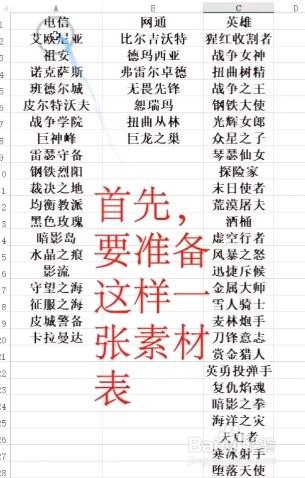 A B C
电信 网通 英雄
艾欧尼亚 比尔吉沃特 猩红收割者
祖安 德玛西亚 战争女神
诺克萨斯 弗雷尔卓德 扭曲树精
班德尔城 无畏先锋 战争之王
皮尔特沃夫 恕瑞玛 钢铁大使
战争学院 扭曲丛林 光辉女郎
巨神峰 巨龙之巢 众星之子
雷瑟守备 琴瑟仙女
钢铁烈阳 探险家
裁决之地 末日使者
均衡教派 荒漠屠夫
黑色玫瑰 酒桶
暗影岛 虚空行者
水晶之痕 风暴之怒
影流 迅捷斥候
守望之海 金属大师
征服之海 雪人骑士
皮城警备 麦林炮手
卡拉曼达 刀锋意志
赏金猎人
英勇投弹手
复仇焰魂
暗影之拳
海洋之灾
亡者
寒冰射手
堕落天使
首先，
要准备
这样一
张素材
表